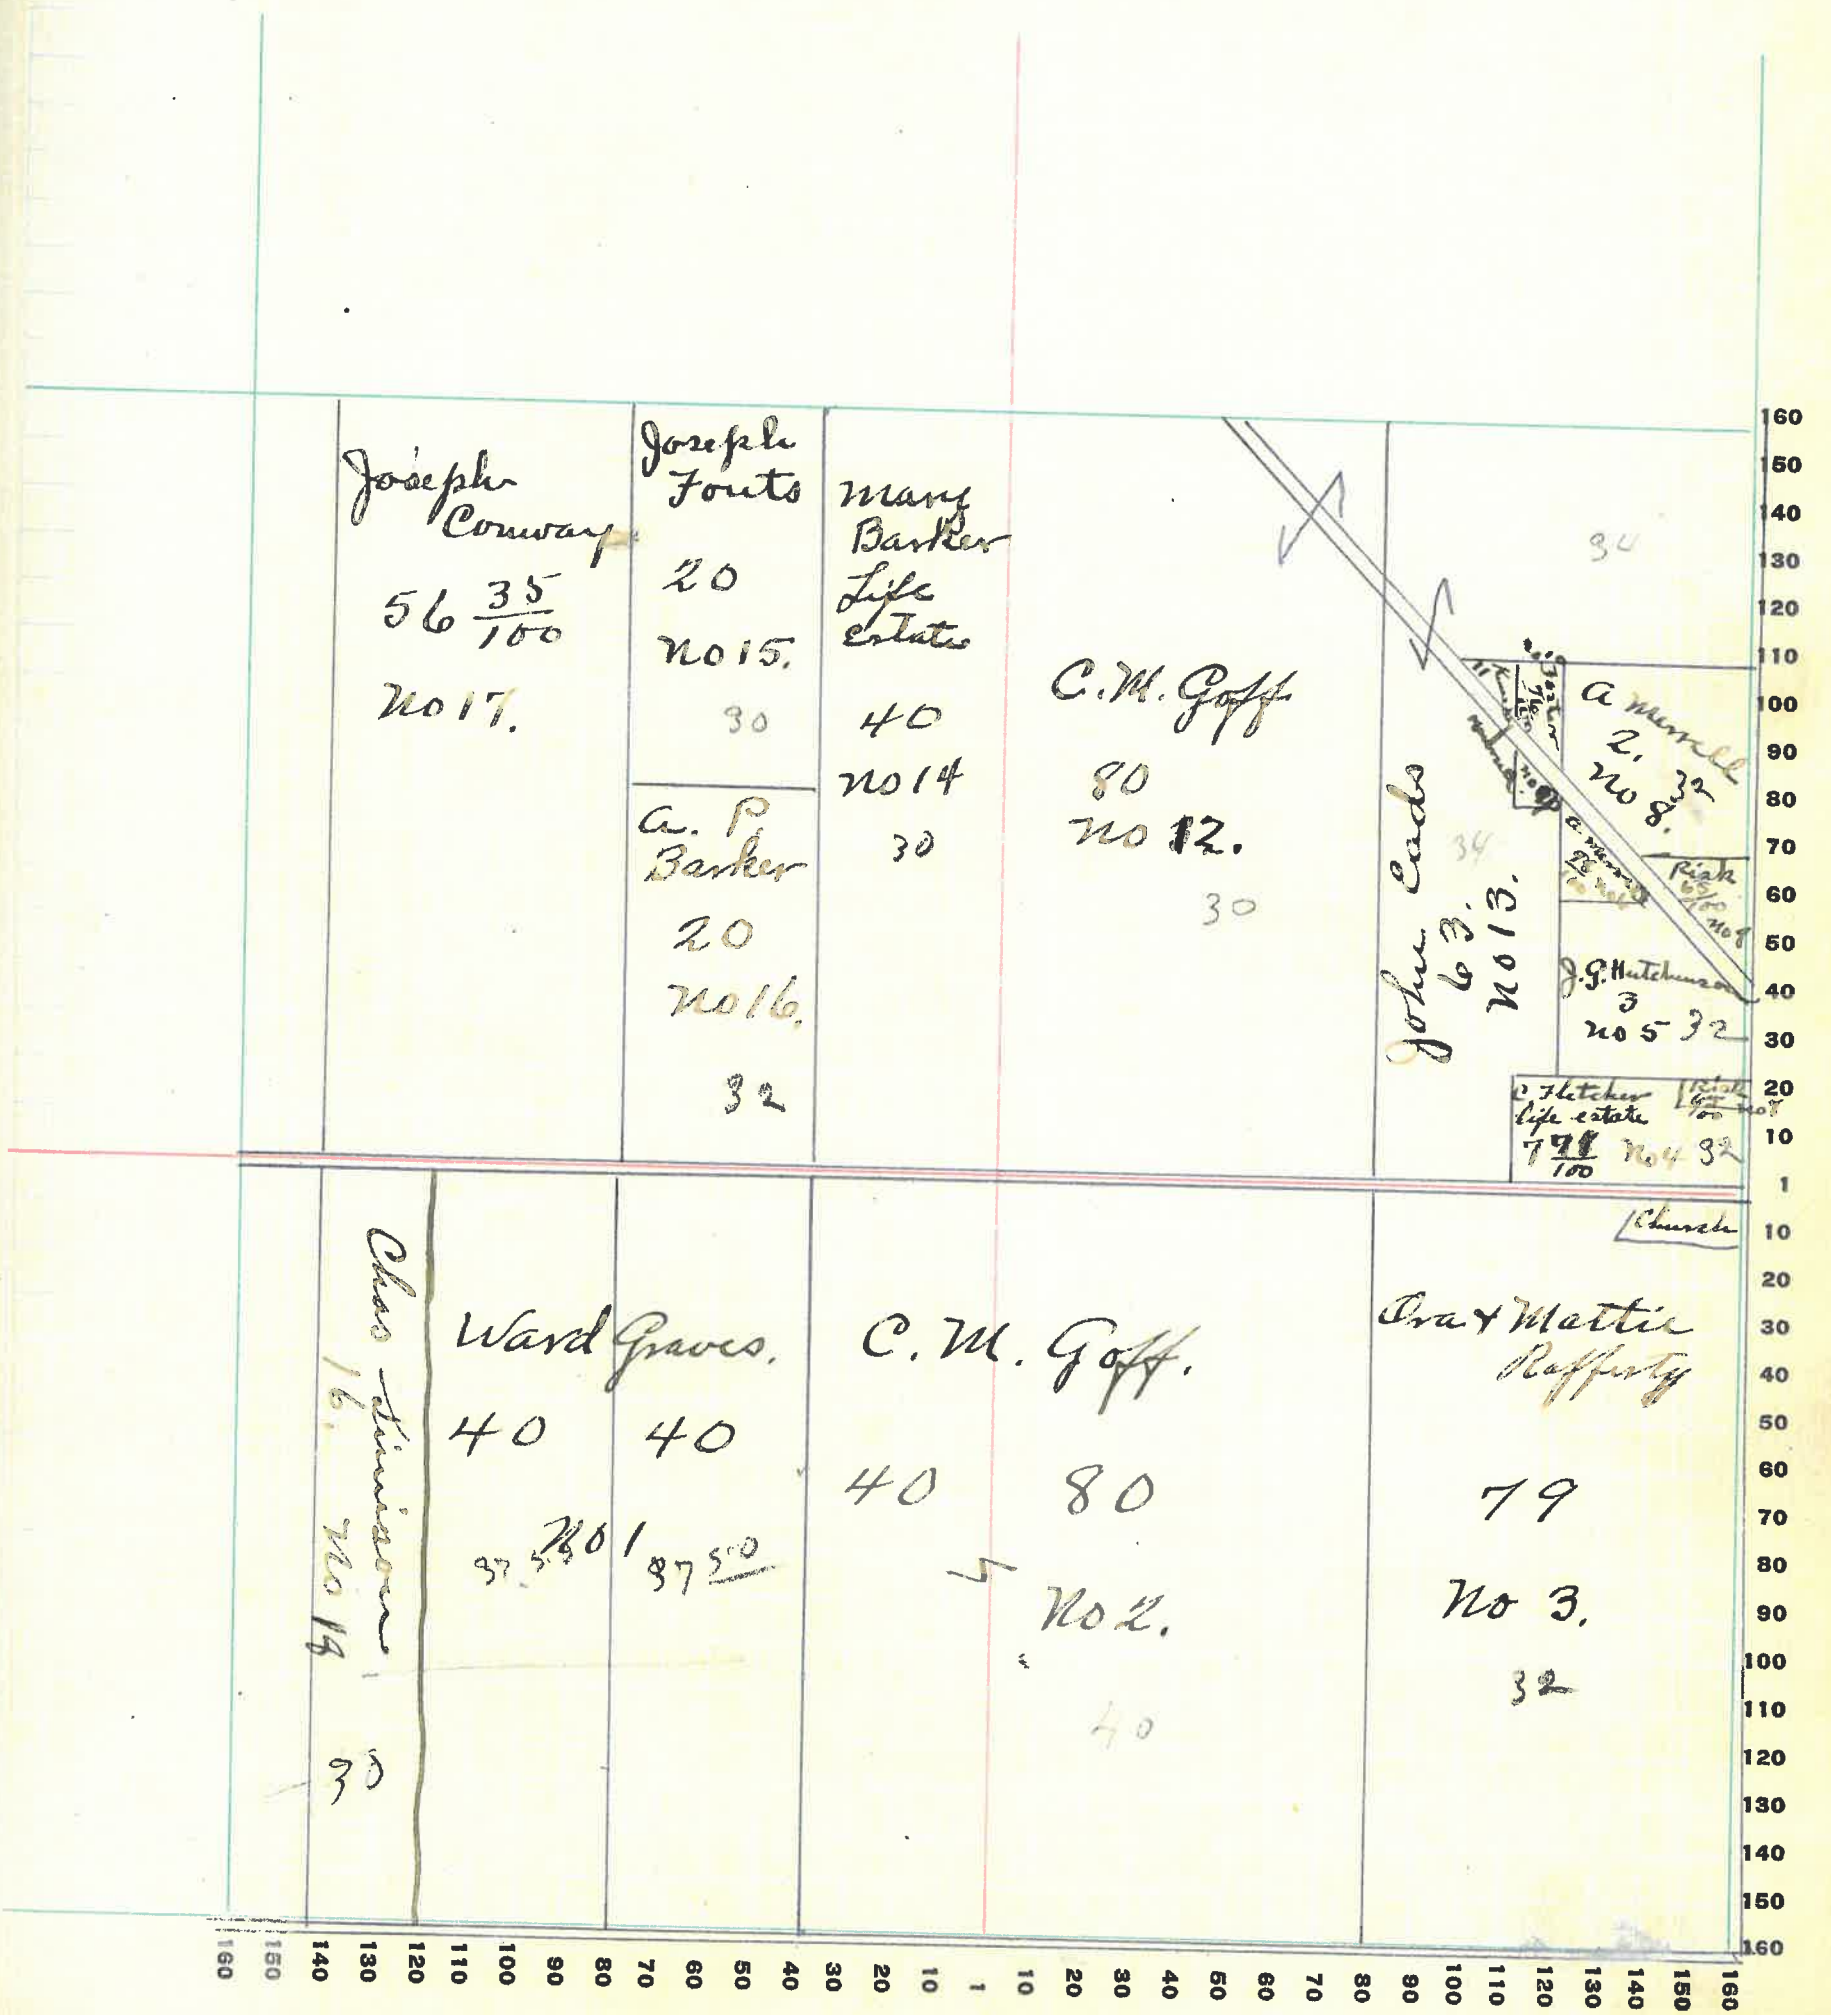 Joseph
Conway
56 35/100
No 17.
Joseph
Fouts
20
No 15.
30
A. P.
Barker
20
No 16.
32
Mary
Barker
Life
Estate
40
No 14
30
C. M. Goff
80
No 12.
30
John Eads
63.
No 13.
34
34
A Merrell
2.
32
No 8.
Risk
65/100
J. G. Hutchinson
3
No 5 32
C Fletcher
life estate
No 4 32
Risk
Church
Chas
16. No 18
30
Ward Graves.
40 40
No 1
37.50 37 50
C. M. Goff.
40 80
No 2.
40
Ora & Mattie
Rafferty
79
No 3.
32
160
150
140
130
120
110
100
90
80
70
60
50
40
30
20
10
1
10
20
30
40
50
60
70
80
90
100
110
120
130
140
150
160
160 150 140 130 120 110 100 90 80 70 60 50 40 30 20 10 1 10 20 30 40 50 60 70 80 90 100 110 120 130 140 150 160